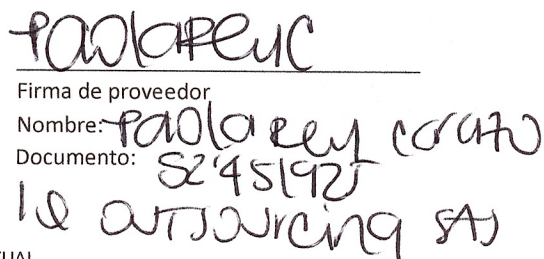 Paola Rey C
Firma de proveedor
Nombre: Paola Rey Corazo
Documento: 52'451925
IQ outsourcing SAS